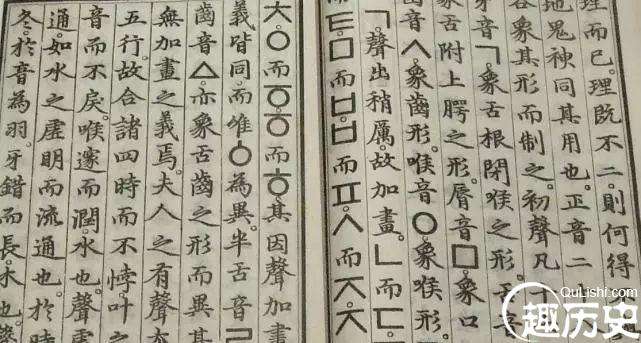 理而已。理既不二。則何得
地鬼神同其用也。正音二
各象其形而制之。初聲凡十
牙音ㄱ。象舌根閉喉之形。舌音
象舌附上腭之形。脣音ㅁ。象口
音ㅅ。象齒形。喉音ㅇ。象喉形。
ㄱ。聲出稍厲。故加畫。ㄴ而ㄷ。
ㅌ。ㅁ而ㅂ。ㅂ而ㅍ。ㅅ而ㅈ。ㅈ
ㅊ。ㅇ而ㆆ。ㆆ而ㅎ。其因聲加畫
義皆同。而唯ㆁ為異。半舌音ㄹ
齒音ㅿ。亦象舌齒之形而異其
無加畫之義焉。夫人之有聲
五行。故合諸四時而不悖。叶之
音而不戾。喉邃而潤。水也。聲虛
通。如水之虛明而流通也。於時
冬。於音為羽。牙錯而長。木也。
QuLishi.com
趣历史